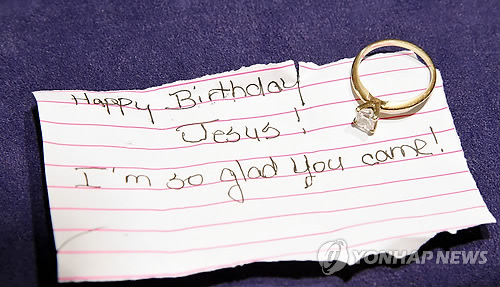 Happy Birthday
Jesus!
I'm so glad you came!
YONHAP NEWS